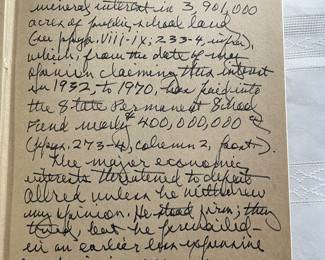 mineral interest in 3,901,000
acres of public school land
(see pp. viii-ix; 233-4, infra),
which, from the date of my
opinion claiming this interest
in 1932, to 1970, has paid into
the State Permanent School
Fund nearly $400,000,000
(pp. 273-4, column 2, post).
The major economic
interests threatened to defeat
Allred unless he withdrew
my opinion. He stood firm; they
tried, but he prevailed—
in an earlier less expensive